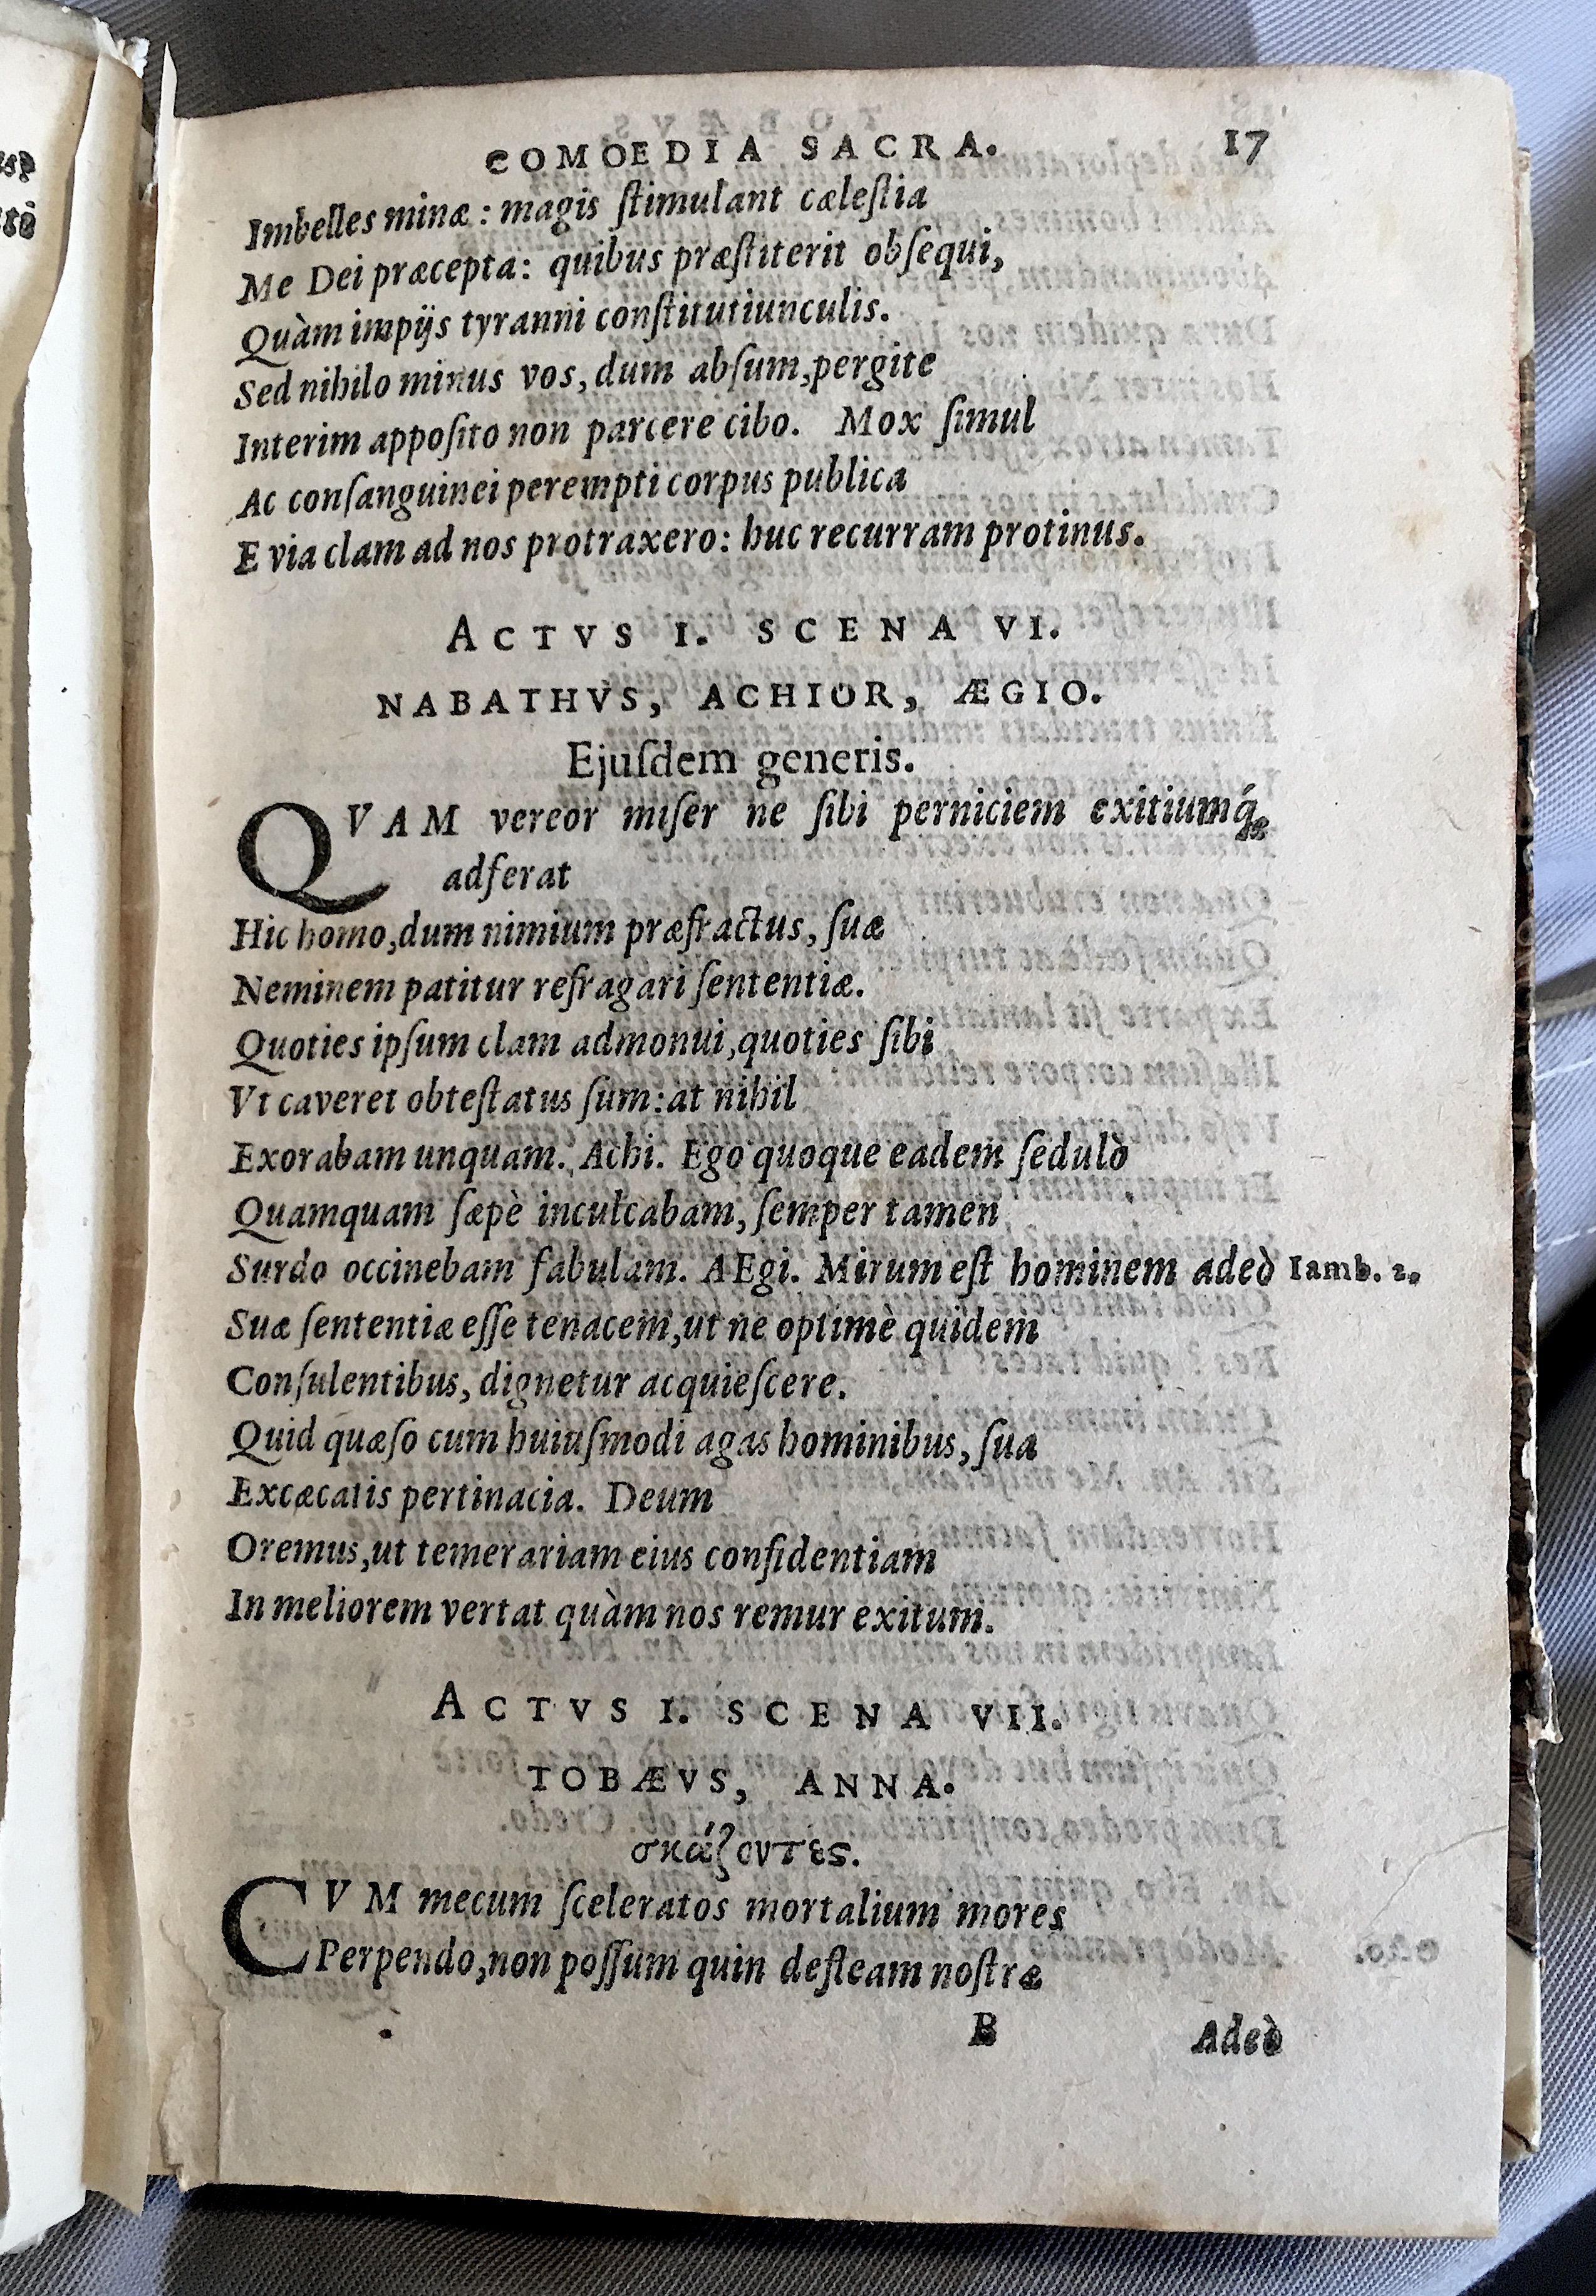 COMOEDIA SACRA. 17
Imbelles minæ: magis ſtimulant cæleſtia
Me Dei præcepta: quibus præſtiterit obſequi,
Quàm impijs tyranni conſtitutiunculis.
Sed nihilo minus vos, dum abſum, pergite
Interim appoſito non parcere cibo. Mox ſimul
Ac conſanguinei perempti corpus publica
E via clam ad nos protraxero: huc recurram protinus.
ACTVS I. SCENA VI.
NABATHVS, ACHIOR, ÆGIO.
Ejuſdem generis.
QVAM vereor miſer ne ſibi perniciem exitiumq́ꝫ
adferat
Hic homo, dum nimium præfractus, ſuæ
Neminem patitur refragari ſententiæ.
Quoties ipſum clam admonui, quoties ſibi
Vt caveret obteſtatus ſum: at nihil
Exorabam unquam. Achi. Ego quoque eadem ſedulò
Quamquam ſæpè inculcabam, ſemper tamen
Surdo occinebam fabulam. AEgi. Mirum eſt hominem adeò Iamb. 2.
Suæ ſententiæ eſſe tenacem, ut ne optimè quidem
Conſulentibus, dignetur acquieſcere.
Quid quæſo cum huiuſmodi agas hominibus, ſua
Excæcatis pertinacia. Deum
Oremus, ut temerariam eius confidentiam
In meliorem vertat quàm nos remur exitum.
ACTVS I. SCENA VII.
TOBÆVS, ANNA.
σκάζοντες.
CVM mecum ſceleratos mortalium mores
Perpendo, non poſſum quin defleam noſtræ
B Adeò